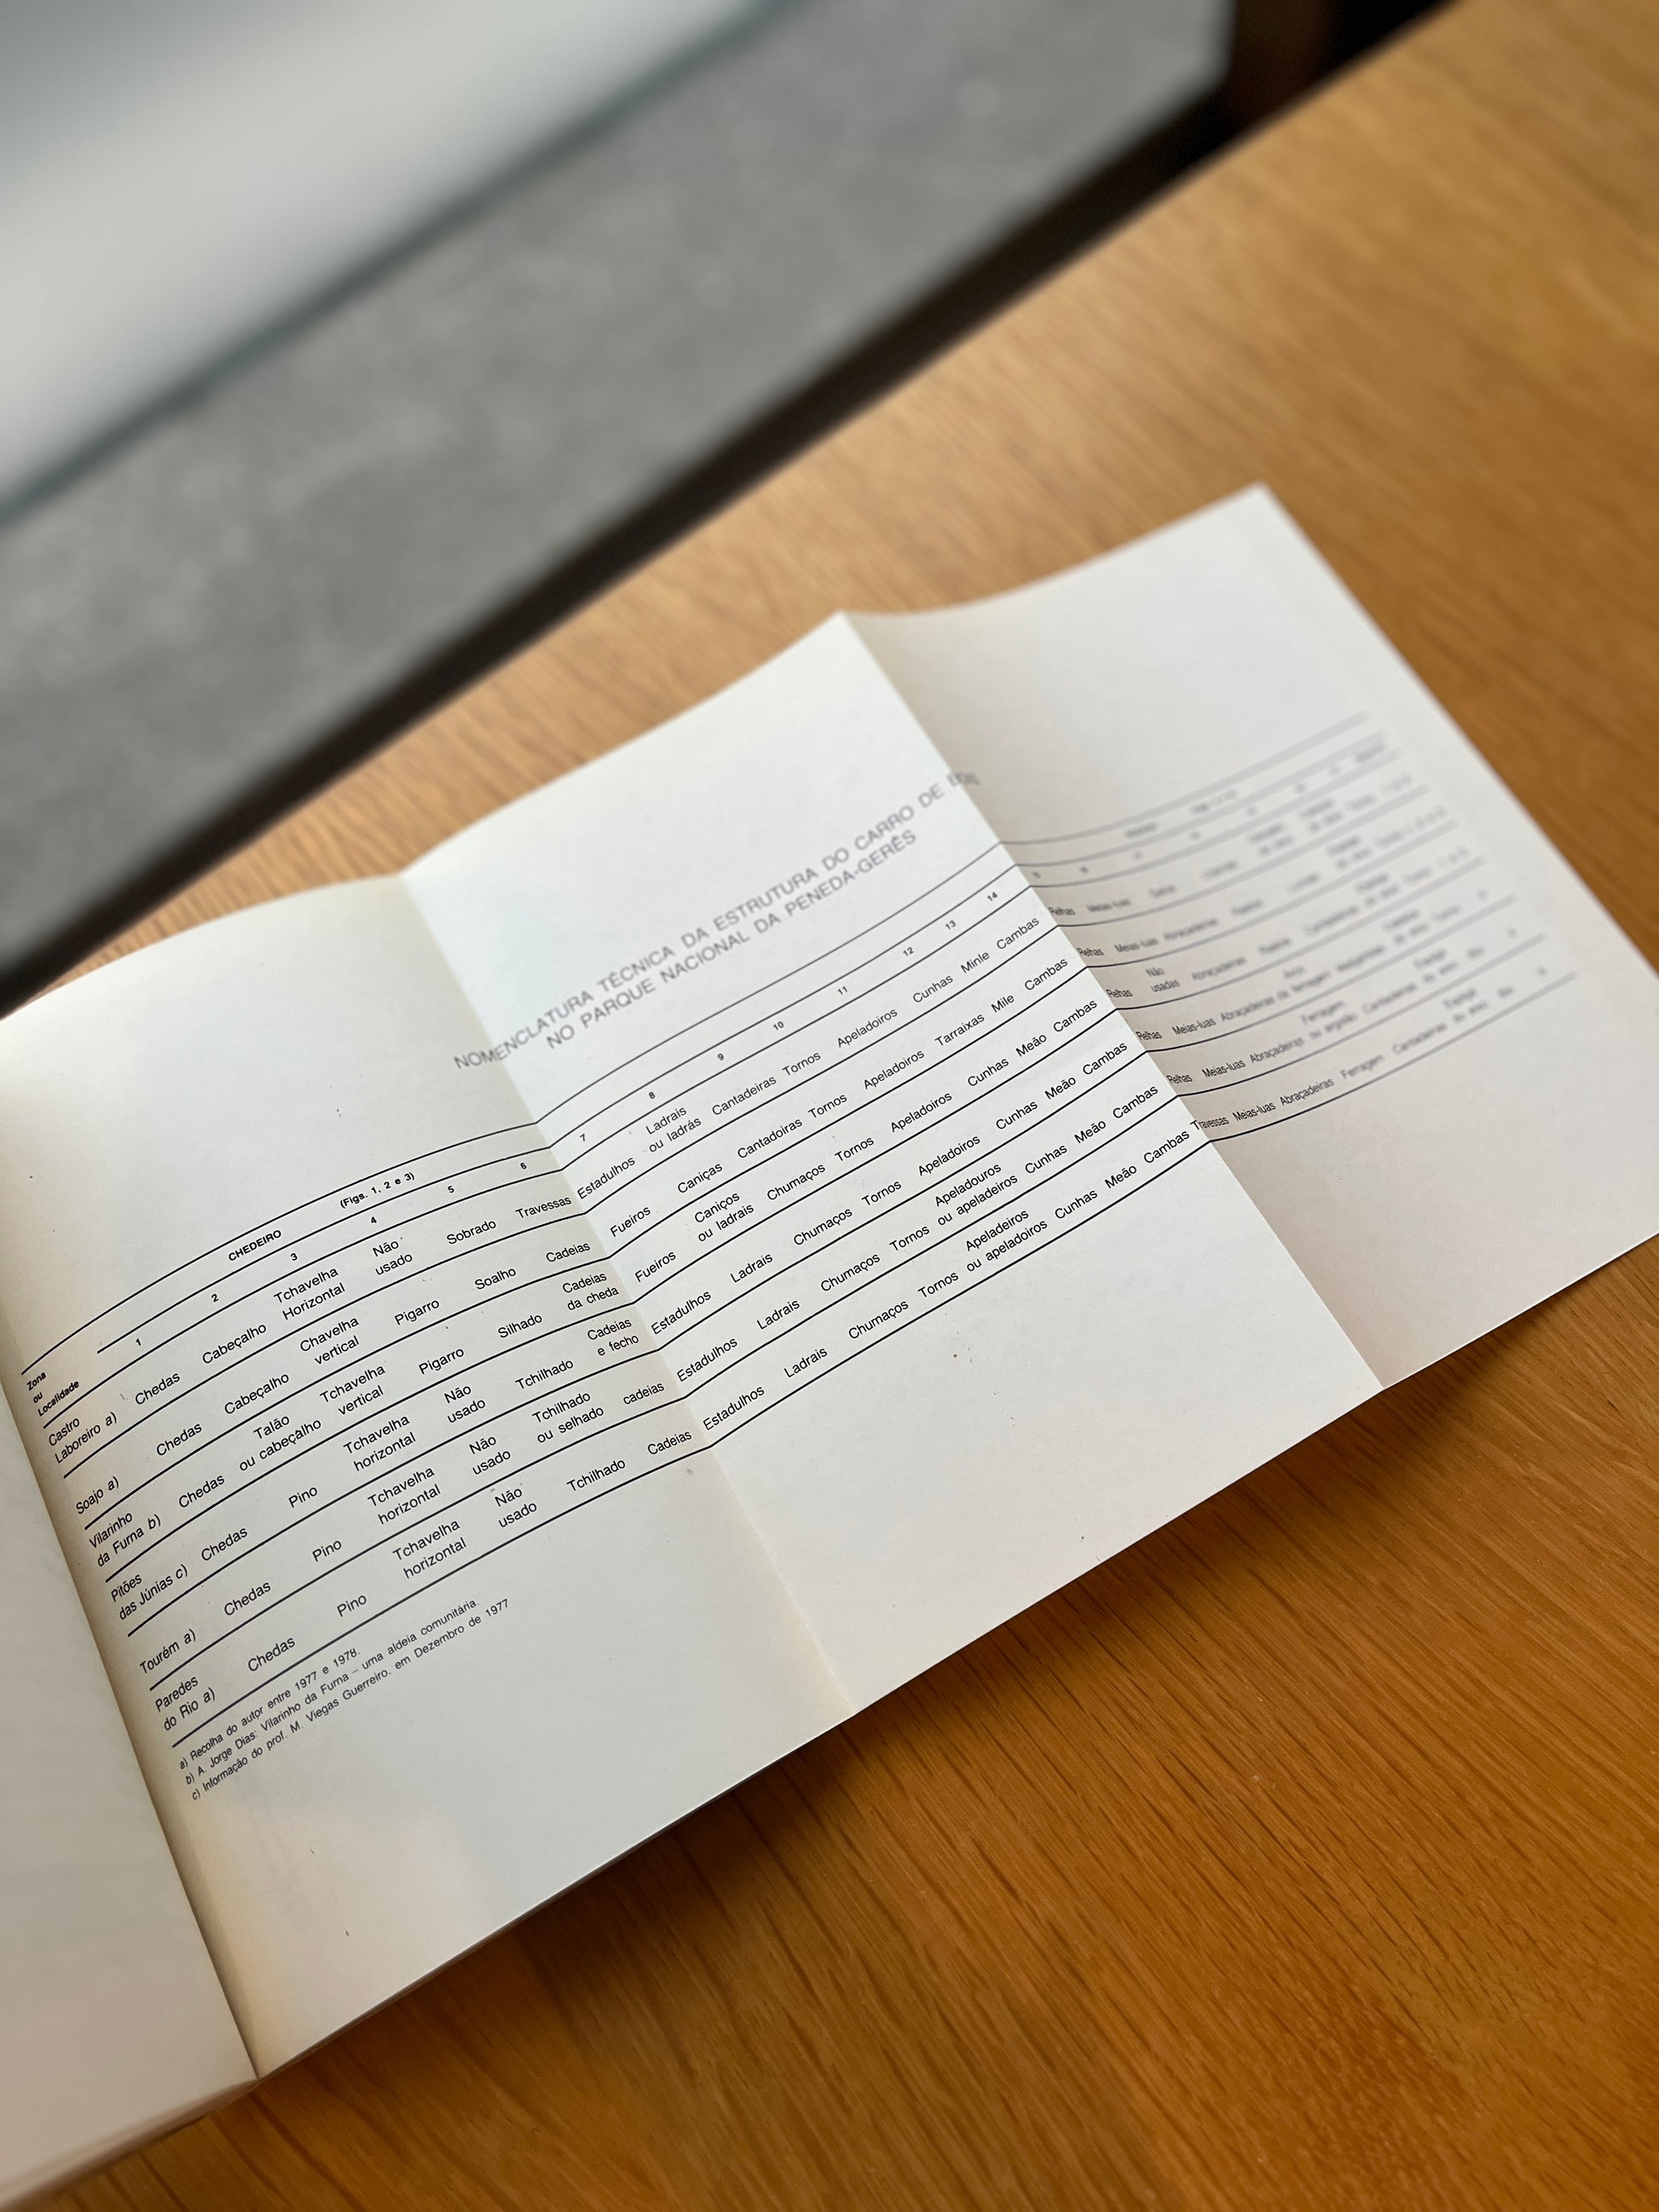 NOMENCLATURA TÉCNICA DA ESTRUTURA DO CARRO DE
NO PARQUE NACIONAL DA PENEDA-GERÊS
CHEDEIRO (Figs. 1, 2 e 3)
Zona
ou
Localidade
1 2 3 4 5 6 7 8 9 10 11 12 13 14
Castro
Laboreiro a) Chedas Cabeçalho Tchavelha Horizontal Não usado Sobrado Travessas Estadulhos Ladrais ou ladrás Cantadeiras Tornos Apeladoiros Cunhas Minle Cambas Relhas Meias-luas
Soajo a) Chedas Cabeçalho Chavelha vertical Pigarro Soalho Cadeias Fueiros Caniças Cantadoiras Tornos Apeladoiros Tarraixas Mile Cambas Relhas Meias-luas Abraçadeiras
Vilarinho
da Furna b) Chedas Talão ou cabeçalho Tchavelha vertical Pigarro Silhado Cadeias da cheda Fueiros Caniços ou ladrais Chumaços Tornos Apeladoiros Cunhas Meão Cambas Relhas Não usadas Abraçadeiras
Pitões
das Júnias c) Chedas Pino Tchavelha horizontal Não usado Tchilhado Cadeias e fecho Estadulhos Ladrais Chumaços Tornos Apeladoiros Cunhas Meão Cambas Relhas Meias-luas Abraçadeiras
Tourém a) Chedas Pino Tchavelha horizontal Não usado Tchilhado ou selhado cadeias Estadulhos Ladrais Chumaços Tornos Apeladouros ou apeladeiros Cunhas Meão Cambas Relhas Meias-luas Abraçadeiras
Paredes
do Rio a) Chedas Pino Tchavelha horizontal Não usado Tchilhado Cadeias Estadulhos Ladrais Chumaços Tornos Apeladeiros ou apeladoiros Cunhas Meão Cambas Travessas Meias-luas Abraçadeiras Ferragem Cantadeiras
a) Recolha do autor entre 1977 e 1978.
b) A. Jorge Dias: Vilarinho da Furna – uma aldeia comunitária.
c) Informação do prof. M. Viegas Guerreiro, em Dezembro de 1977